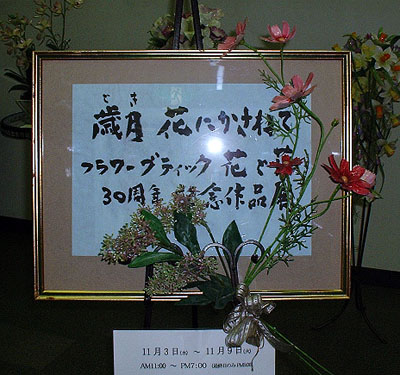 とき
歳月 花にかさねて
フラワーブティック 花と
30周年 念作品展
11月3日(水) ～ 11月9日(火)
AM11:00 ～ PM7:00